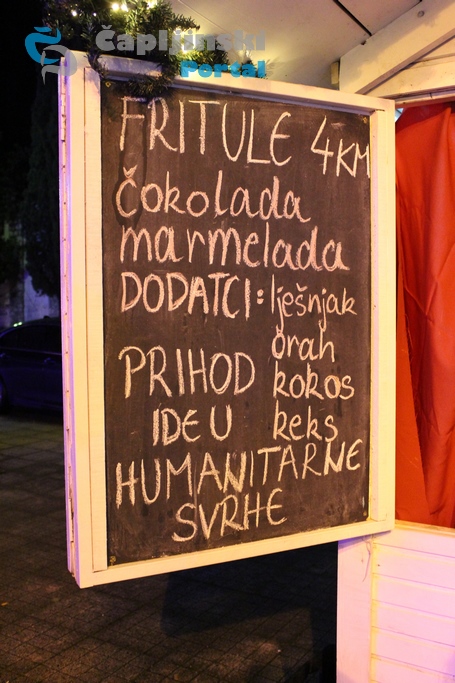 Čapljinski
Portal
FRITULE 4KM
čokolada
marmelada
DODATCI: lješnjak
orah
PRIHOD kokos
IDE U keks
HUMANITARNE
SVRHE